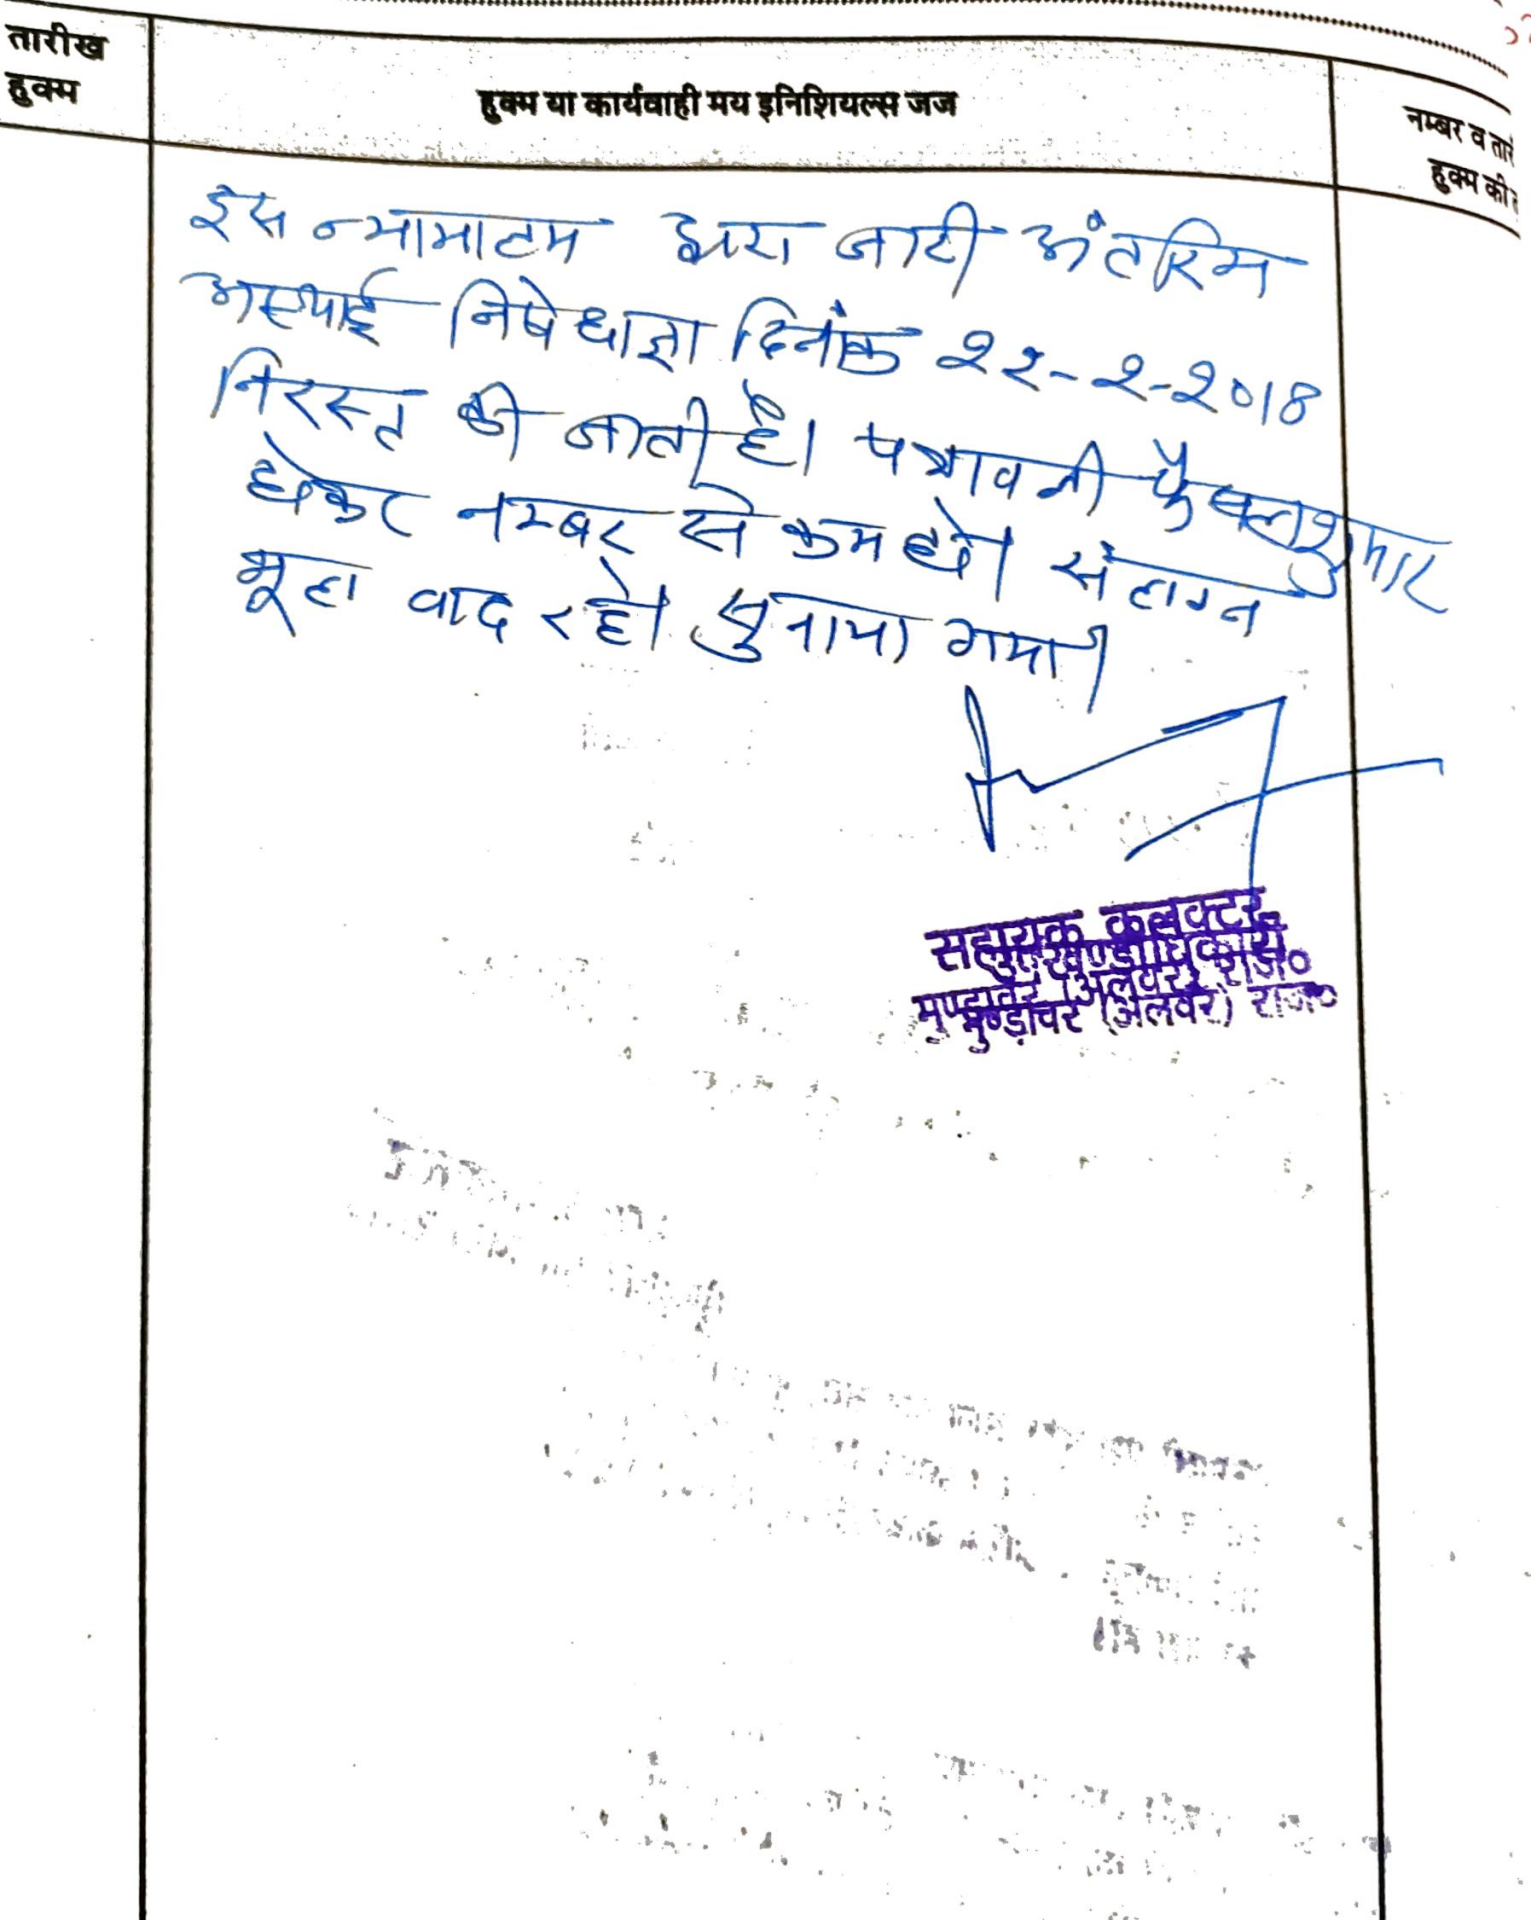 तारीख
हुक्म
हुक्म या कार्यवाही मय इनिशियल्स जज
नम्बर व तारी
हुक्म की
इस न्यायालय द्वारा जारी अंतरिम
अस्थाई निषेधाज्ञा दिनांक 22-2-2018
निरस्त की जाती है। पत्रावली फैसलशुमार
होकर नम्बर से कम हो। संलग्न
मूल वाद रहे। सुनाया गया।
सहायक कलक्टर
उपखण्ड अधिकारी
मुण्डावर (अलवर) राज०
मुण्डावर (अलवर) राज०